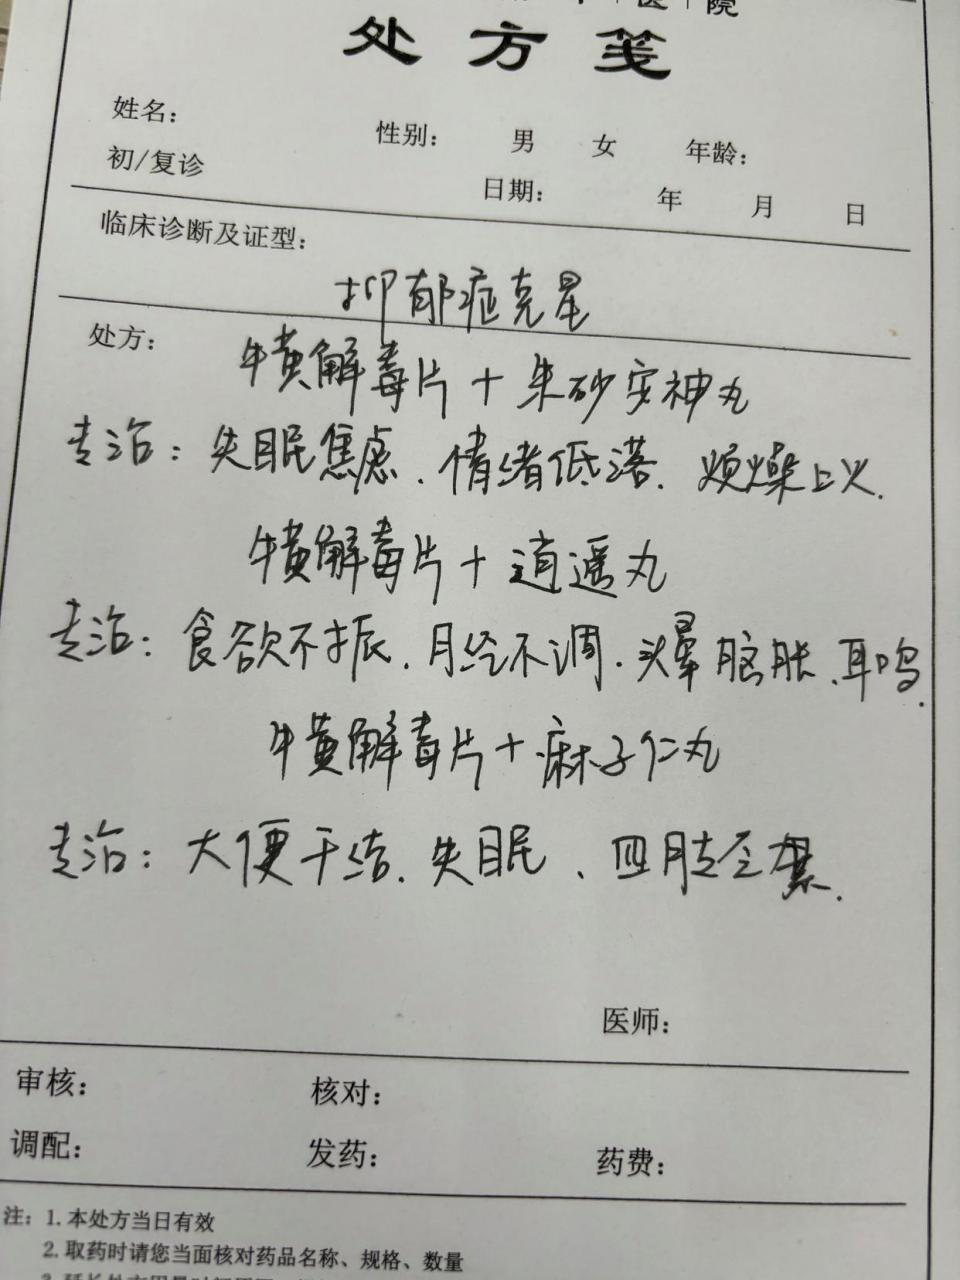 中医院
处方笺
姓名： 性别： 男 女 年龄：
初/复诊 日期： 年 月 日
临床诊断及证型：
抑郁症克星
处方： 牛黄解毒片+朱砂安神丸
专治：失眠焦虑、情绪低落、烦燥上火.
牛黄解毒片+逍遥丸
专治：食欲不振、月经不调、头晕脑胀、耳鸣.
牛黄解毒片+麻子仁丸
专治：大便干结、失眠、四肢乏累.
医师：
审核： 核对：
调配： 发药： 药费：
注：1.本处方当日有效
2.取药时请您当面核对药品名称、规格、数量